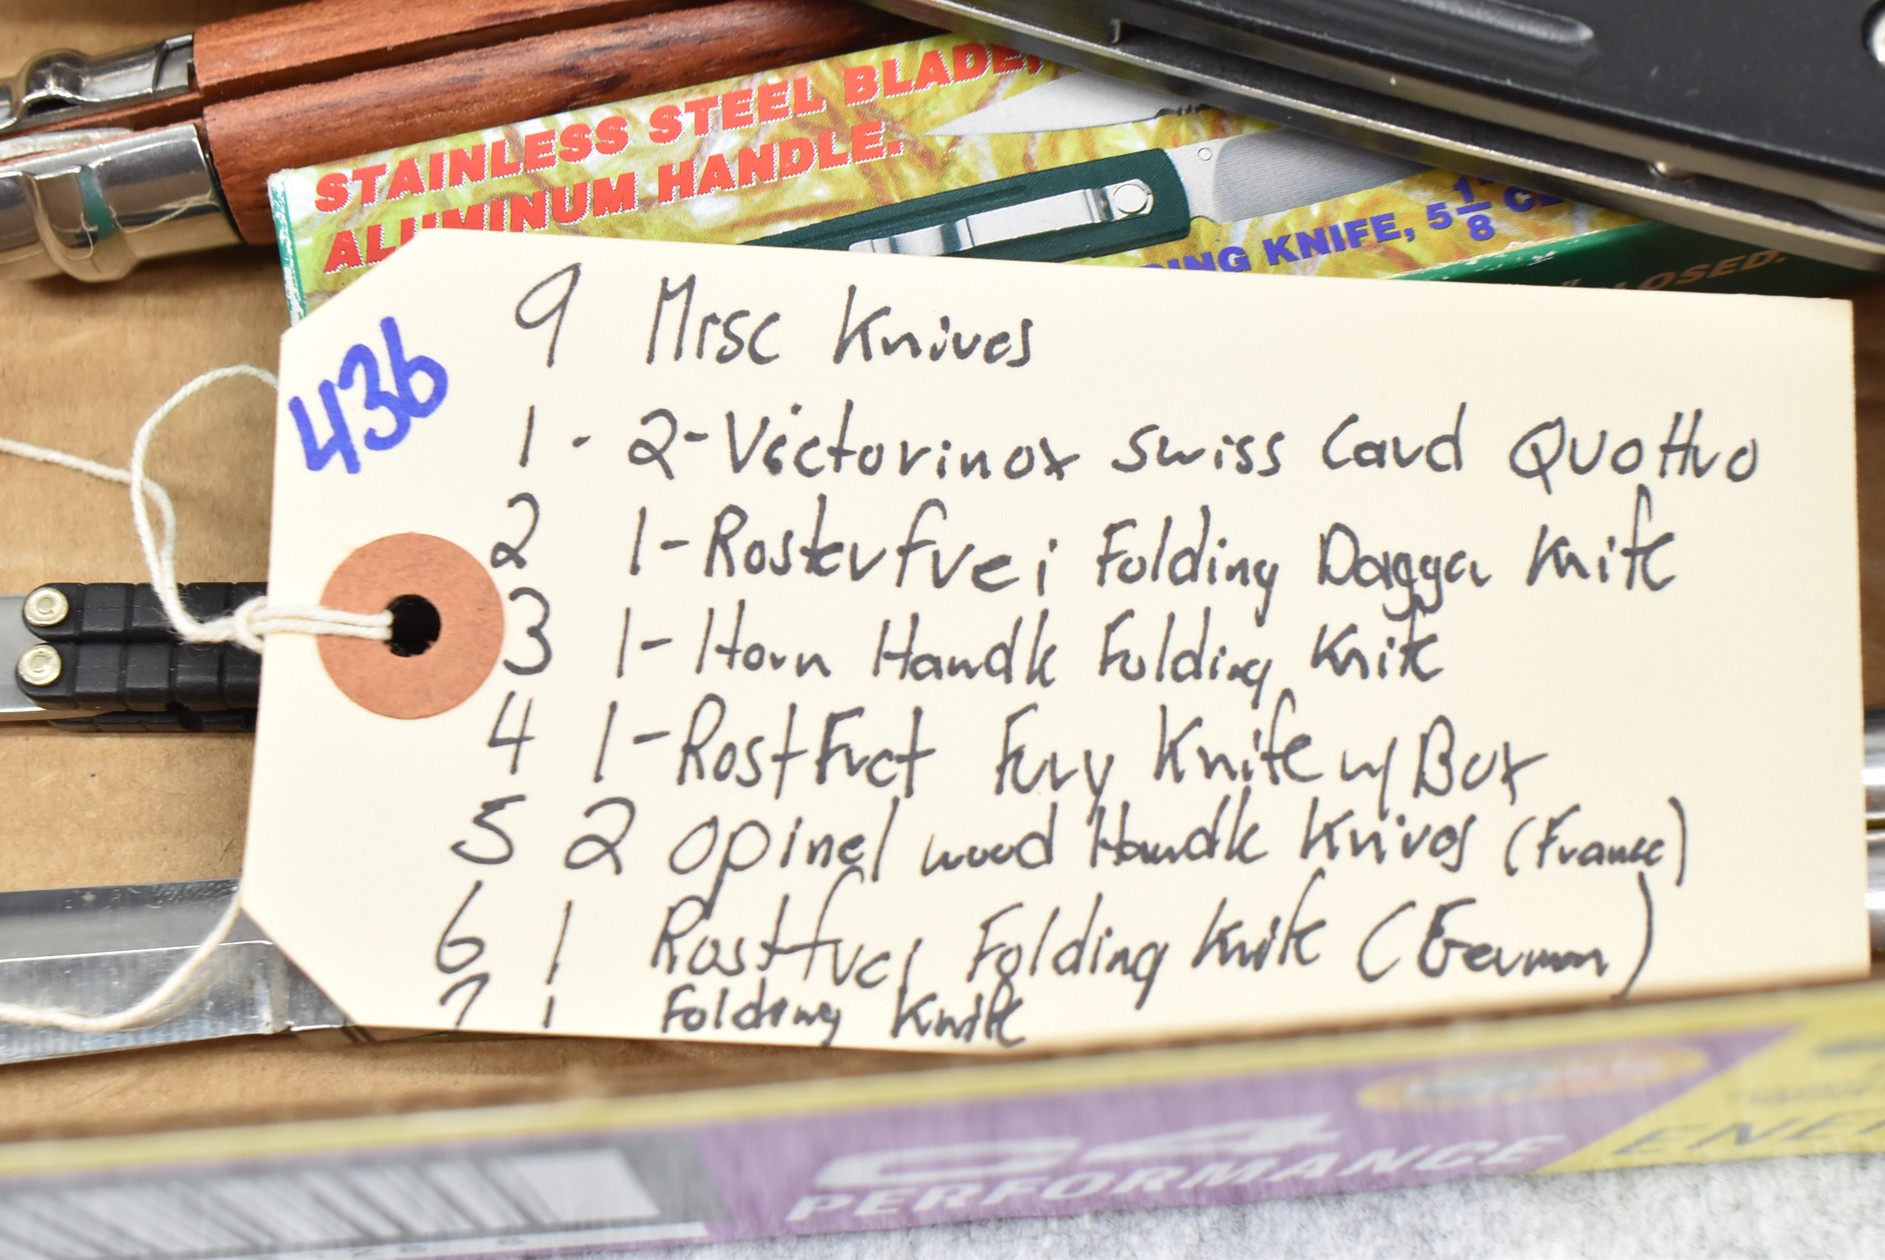 STAINLESS STEEL BLADE,
ALUMINUM HANDLE.
DING KNIFE, 5 1/8" CL
LOSED.
436
9 Misc Knives
1 - 2-Victorinox Swiss Card Quottro
2 1-Rosterfrei Folding Dagger Knife
3 1-Horn Handle Folding Knife
4 1-RostFret Fury Knife w/ Box
5 2 Opinel wood Handle Knives (France)
6 1 Rostfrei Folding Knife (German)
7 1 Folding Knife
C4
PERFORMANCE
ENE